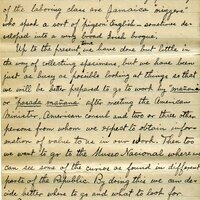 of the laboring class are Jamaica "niggers"
who speak a sort of pigeon English - sometimes de-
veloped into a very broad Irish brogue.
Up to the present we have done but little in
the way of collecting specimens but we have been
just as busy as possible looking at things so that
we will be better prepared to go to work by mañana
or pasada mañana after meeting the American
Minister, American consul and two or three other
persons from whom we expect to obtain infor-
mation of value to us in our work. Then too
we want to go to the Museo Nacional where we
can see some of the curios as found in different
parts of the Republic. By doing this we can de-
cide better where to go and what to look for